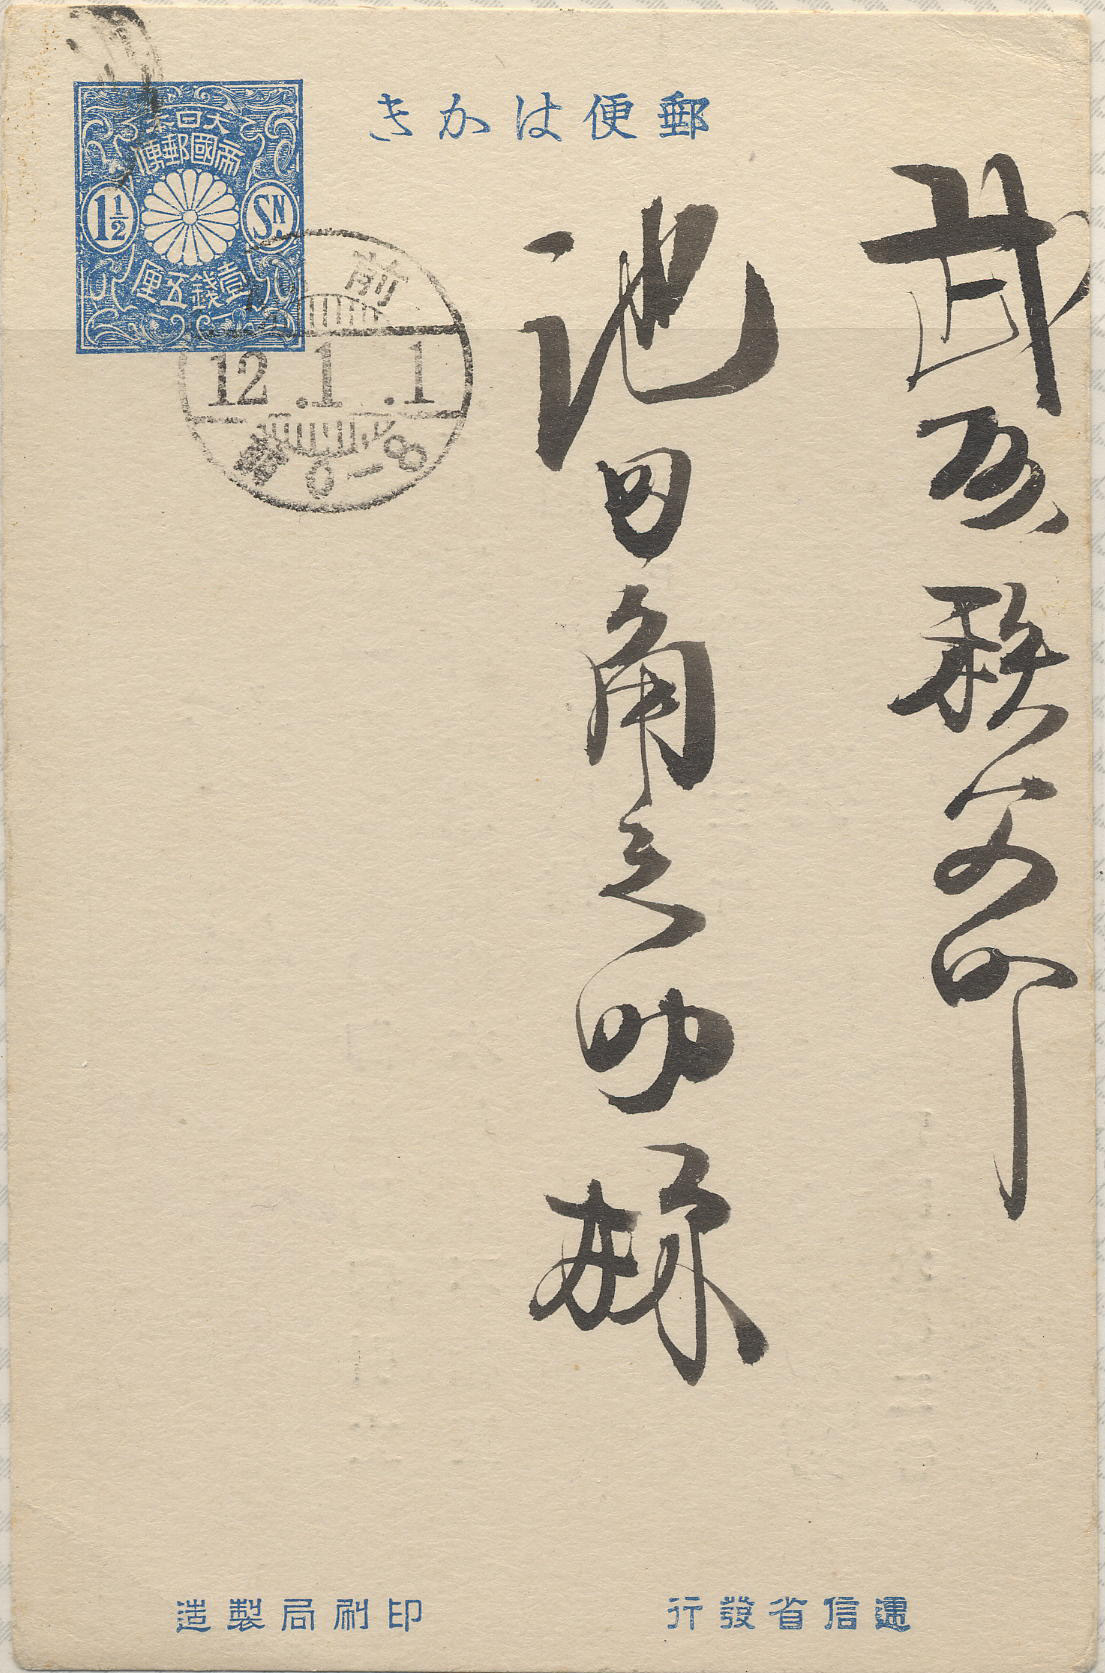 郵便はかき
大日本
帝國郵便
1½
SN.
壹錢五厘
前
12.1.1
前6-8
武州秩父町
池田角之助様
遞信省發行
印刷局製造